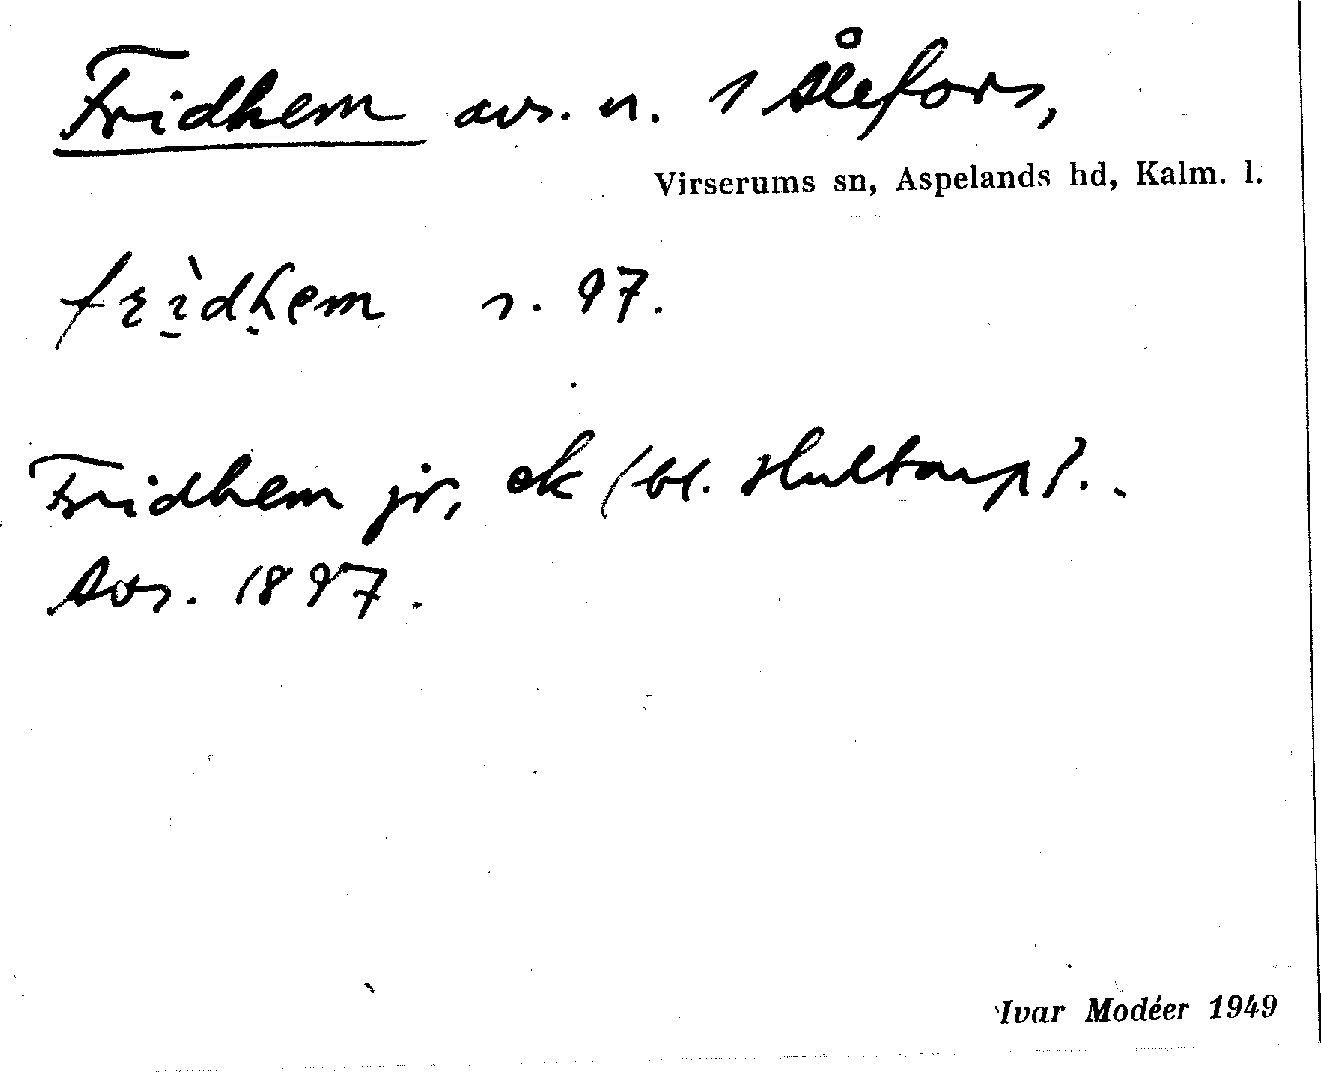 Fridhem avs. n. 1 Ålefors,
Virserums sn, Aspelands hd, Kalm. l.
frìdhem s. 97.
Fridhem jr, ek (bl. Hultarp).
Avs. 1897.
Ivar Modéer 1949